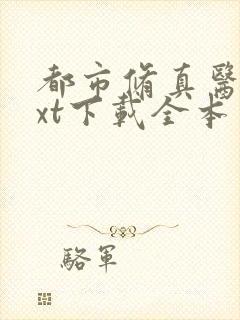 都市脩真醫
xt下載全本
駱軍